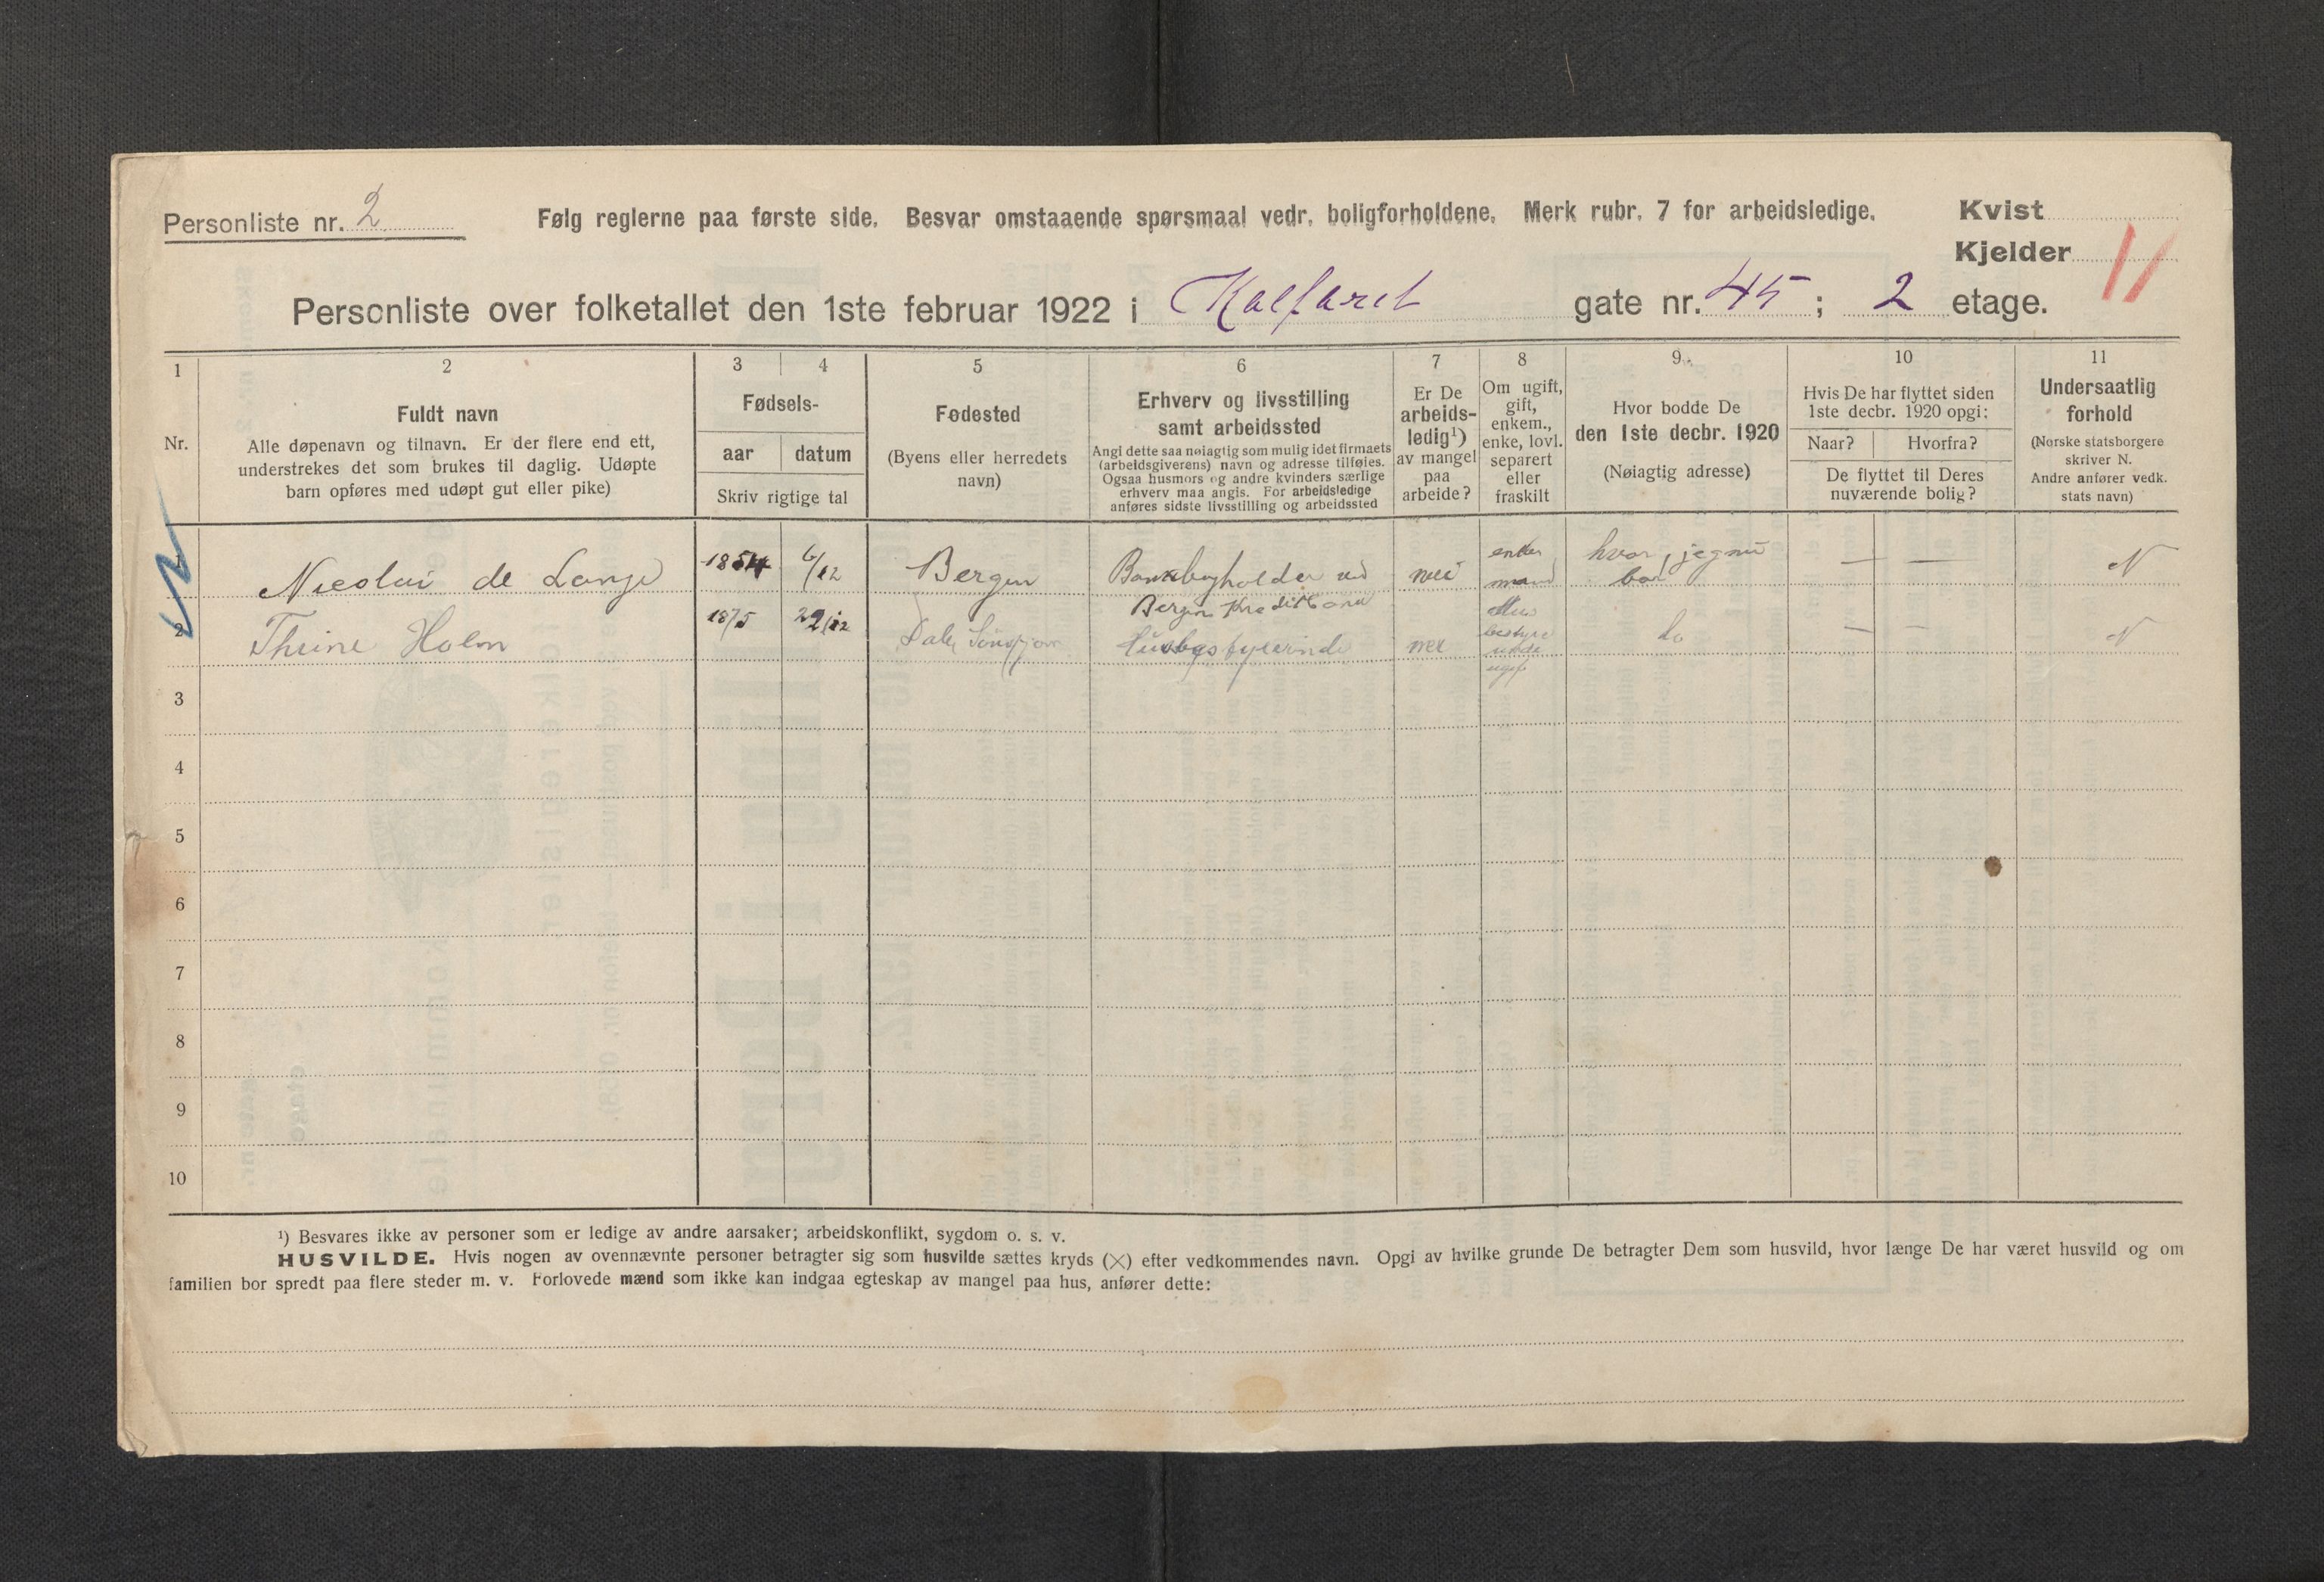 Personliste nr. 2
Følg reglerne paa første side. Besvar omstaaende spørsmaal vedr. boligforholdene. Merk rubr. 7 for arbeidsledige.
Kvist
Kjelder
11
Personliste over folketallet den 1ste februar 1922 i Kalfaret gate nr. 45 ; 2 etage.
1 2 3 4 5 6 7 8 9 10 11
Nr.
Fuldt navn
Alle døpenavn og tilnavn. Er der flere end ett,
understrekes det som brukes til daglig. Udøpte
barn opføres med udøpt gut eller pike)
Fødsels-
aar datum
Skriv rigtige tal
Fødested
(Byens eller herredets
navn)
Erhverv og livsstilling
samt arbeidssted
Angi dette saa nøiagtig som mulig idet firmaets
(arbeidsgiverens) navn og adresse tilføies.
Ogsaa husmors og andre kvinders særlige
erhverv maa angis. For arbeidsledige
anføres sidste livsstilling og arbeidssted
Er De
arbeids-
ledig¹)
av mangel
paa
arbeide?
Om ugift,
gift,
enkem.,
enke, lovl.
separert
eller
fraskilt
Hvor bodde De
den 1ste decbr. 1920
(Nøiagtig adresse)
Hvis De har flyttet siden
1ste decbr. 1920 opgi:
Naar? Hvorfra?
De flyttet til Deres
nuværende bolig?
Undersaatlig
forhold
(Norske statsborgere
skriver N.
Andre anfører vedk.
stats navn)
1 Nicolai de Lange 1854 6/12 Bergen Bankbogholder ved nei enke mand hvor jeg nu bor — — N
Bergen Kreditbank
2 Thrine Holm 1875 22/12 Dale Husbestyrerinde nei ugift do — — N
3
4
5
6
7
8
9
10
¹) Besvares ikke av personer som er ledige av andre aarsaker; arbeidskonflikt, sygdom o. s. v.
HUSVILDE. Hvis nogen av ovennævnte personer betragter sig som husvilde sættes kryds (×) efter vedkommendes navn. Opgi av hvilke grunde De betragter Dem som husvild, hvor længe De har været husvild og om
familien bor spredt paa flere steder m. v. Forlovede mænd som ikke kan indgaa egteskap av mangel paa hus, anfører dette: